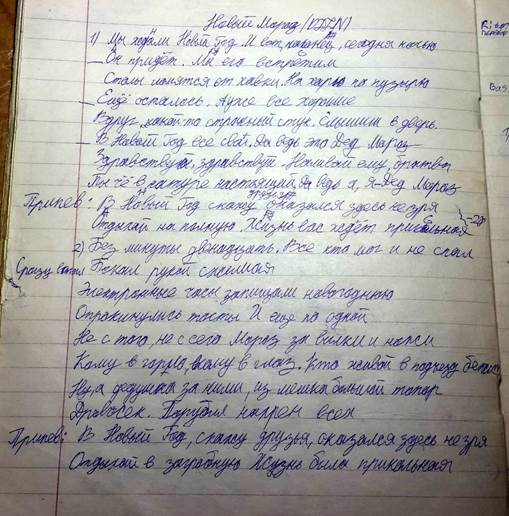 Новый Мороз
1) Мы ждали Новый Год И вот, наконец, сегодня ночью
Он придёт. Мы его встретим
Столы ломятся от хавки. На харю по пузырю
Ещё осталось. А уже все хорошие
Вдруг какой то странный стук. Слышиш в дверь.
В Новый Год все свои. Да ведь это Дед Мороз
Здравствуй, здравствуй. Наливай ему, братва
Ты чё в натуре настоящий Да ведь я, я-Дед Мороз
Припев: В Новый Год скажу друзья оказался здесь не зря
Отдыхай на полную Жизнь вас ждёт прикольная
2) Без минуты двенадцать. Все кто мог и не спал
Сразу встал Бокал рукой сжимая
Электронные часы запищали новогоднюю
Опрокинулись тосты И ещё по одной
Не с того, не с сего Мороз за вилки и ножи
Кому в горло, кому в глаз. Кто живой в подъезд
Ну, а дедушка за ними, из мешка большой топор
Дровосек. Порубил нахрен всех
Припев: В Новый Год, скажу друзья, оказался здесь не зря
Отдыхай в загробную Жизнь была прикольная